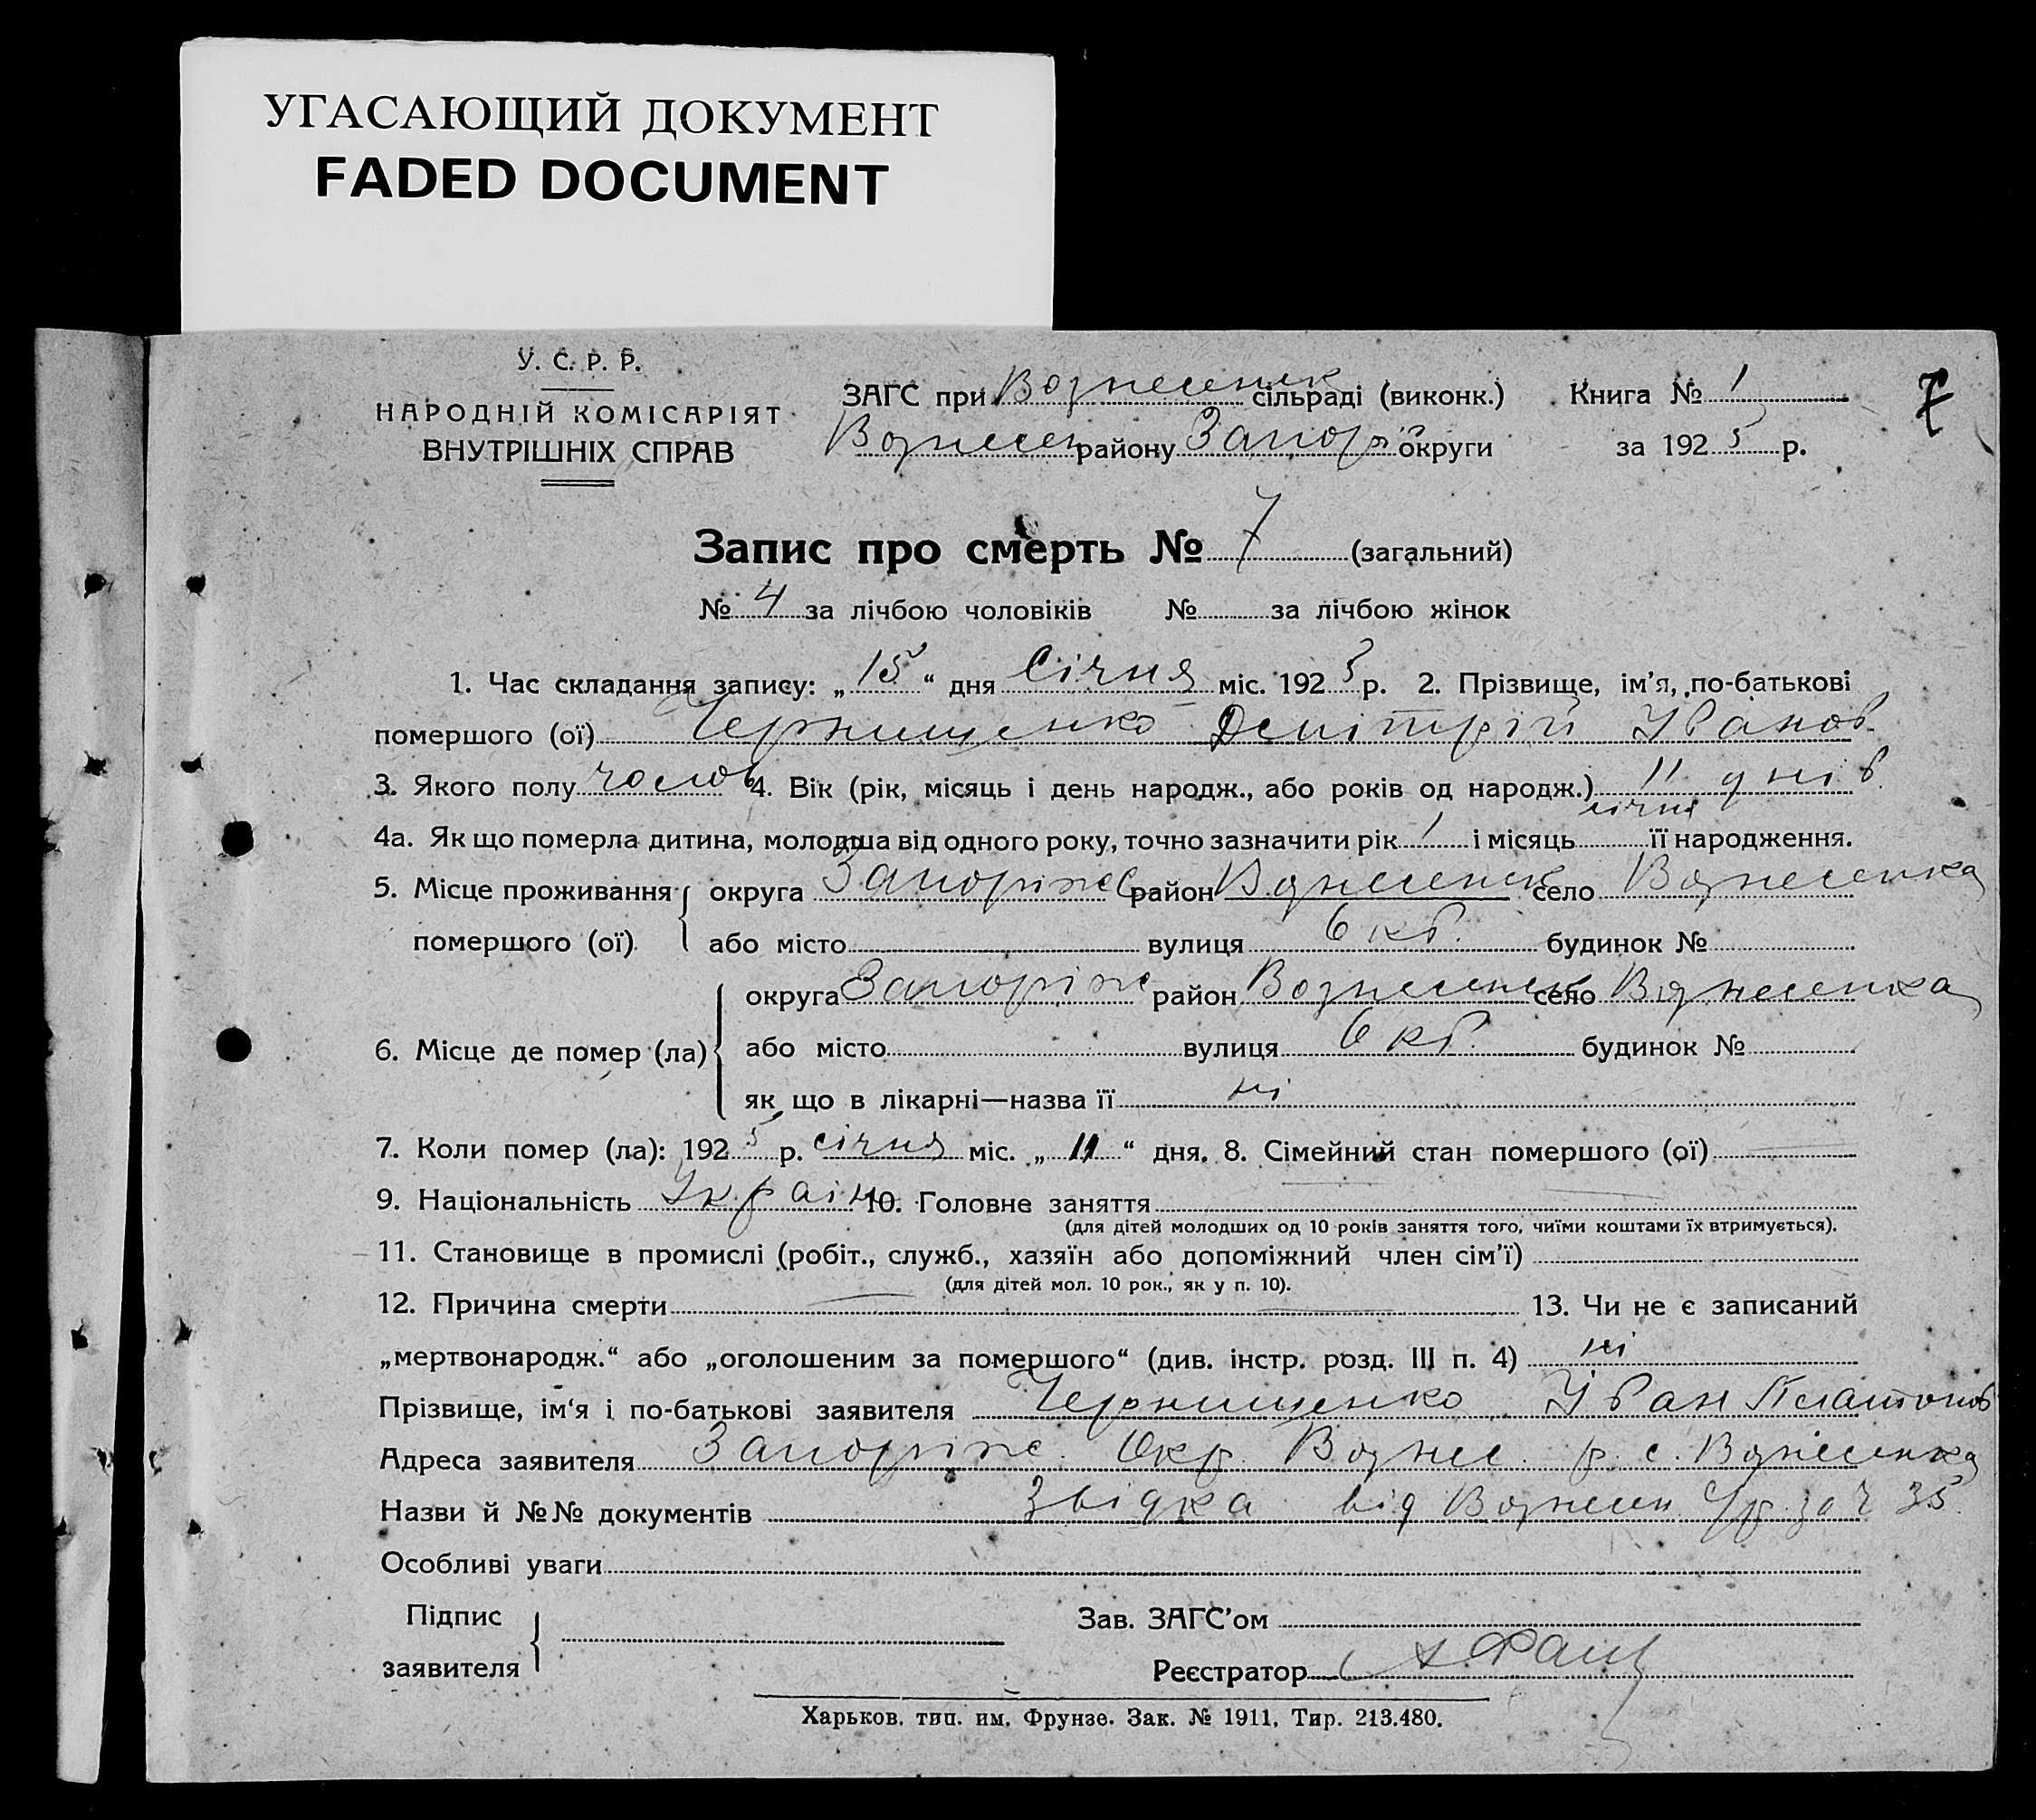 УГАСАЮЩИЙ ДОКУМЕНТ
FADED DOCUMENT
У. С. Р. Р.
НАРОДНІЙ КОМІСАРІЯТ
ВНУТРІШНІХ СПРАВ
ЗАГС при Вознесенск сільраді (виконк.) Книга № 1
7
Вознесен району Запор округи за 1925 р.
Запис про смерть № 7 (загальний)
№ 4 за лічбою чоловіків № за лічбою жінок
1. Час складання запису: „15“ дня Січня міс. 1925 р. 2. Прізвище, ім’я, по-батькові
помершого (ої) Чернищенко Дмітрій Іванов
3. Якого полу чолов 4. Вік (рік, місяць і день народж., або років од народж.) 11 днів
4а. Як що померла дитина, молодша від одного року, точно зазначити рік 1 і місяць січня її народження.
5. Місце проживання округа Запоріж район Вознесенск село Вознесенка
помершого (ої) або місто вулиця 6 кв. будинок №
округа Запоріж район Вознесенск село Вознесенка
6. Місце де помер (ла) або місто вулиця 6 кв. будинок №
як що в лікарні—назва її ні
7. Коли помер (ла): 1925 р. січня міс. „11“ дня. 8. Сімейний стан помершого (ої)
9. Національність Україн 10. Головне заняття
(для дітей молодших од 10 років заняття того, чиїми коштами їх втримується).
11. Становище в промислі (робіт., служб., хазяїн або допоміжний член сім’ї)
(для дітей мол. 10 рок., як у п. 10).
12. Причина смерти 13. Чи не є записаний
„мертвонародж.“ або „оголошеним за помершого“ (див. інстр. розд. III п. 4) ні
Прізвище, ім‘я і по-батькові заявителя Чернищенко Іван Платонов
Адреса заявителя Запоріж. Окр. Вознес. р. с. Вознесенка
Назви й №№ документів Звідка від Вознесен за ч 35
Особливі уваги
Підпис
заявителя
Зав. ЗАГС’ом
Реєстратор
Харьков. тип. им. Фрунзе. Зак. № 1911, Тир. 213.480.